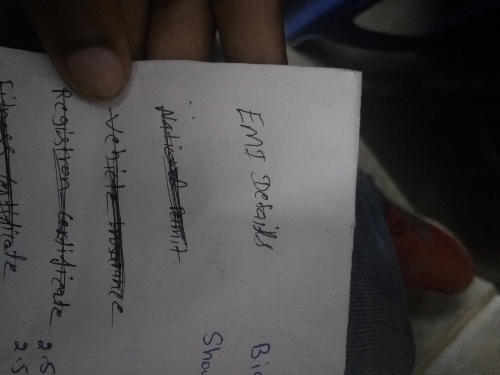 EMI Details
National Permit
Vehicle Insurance
Registron Certificate 2.5
Fitness Certificate 2.5